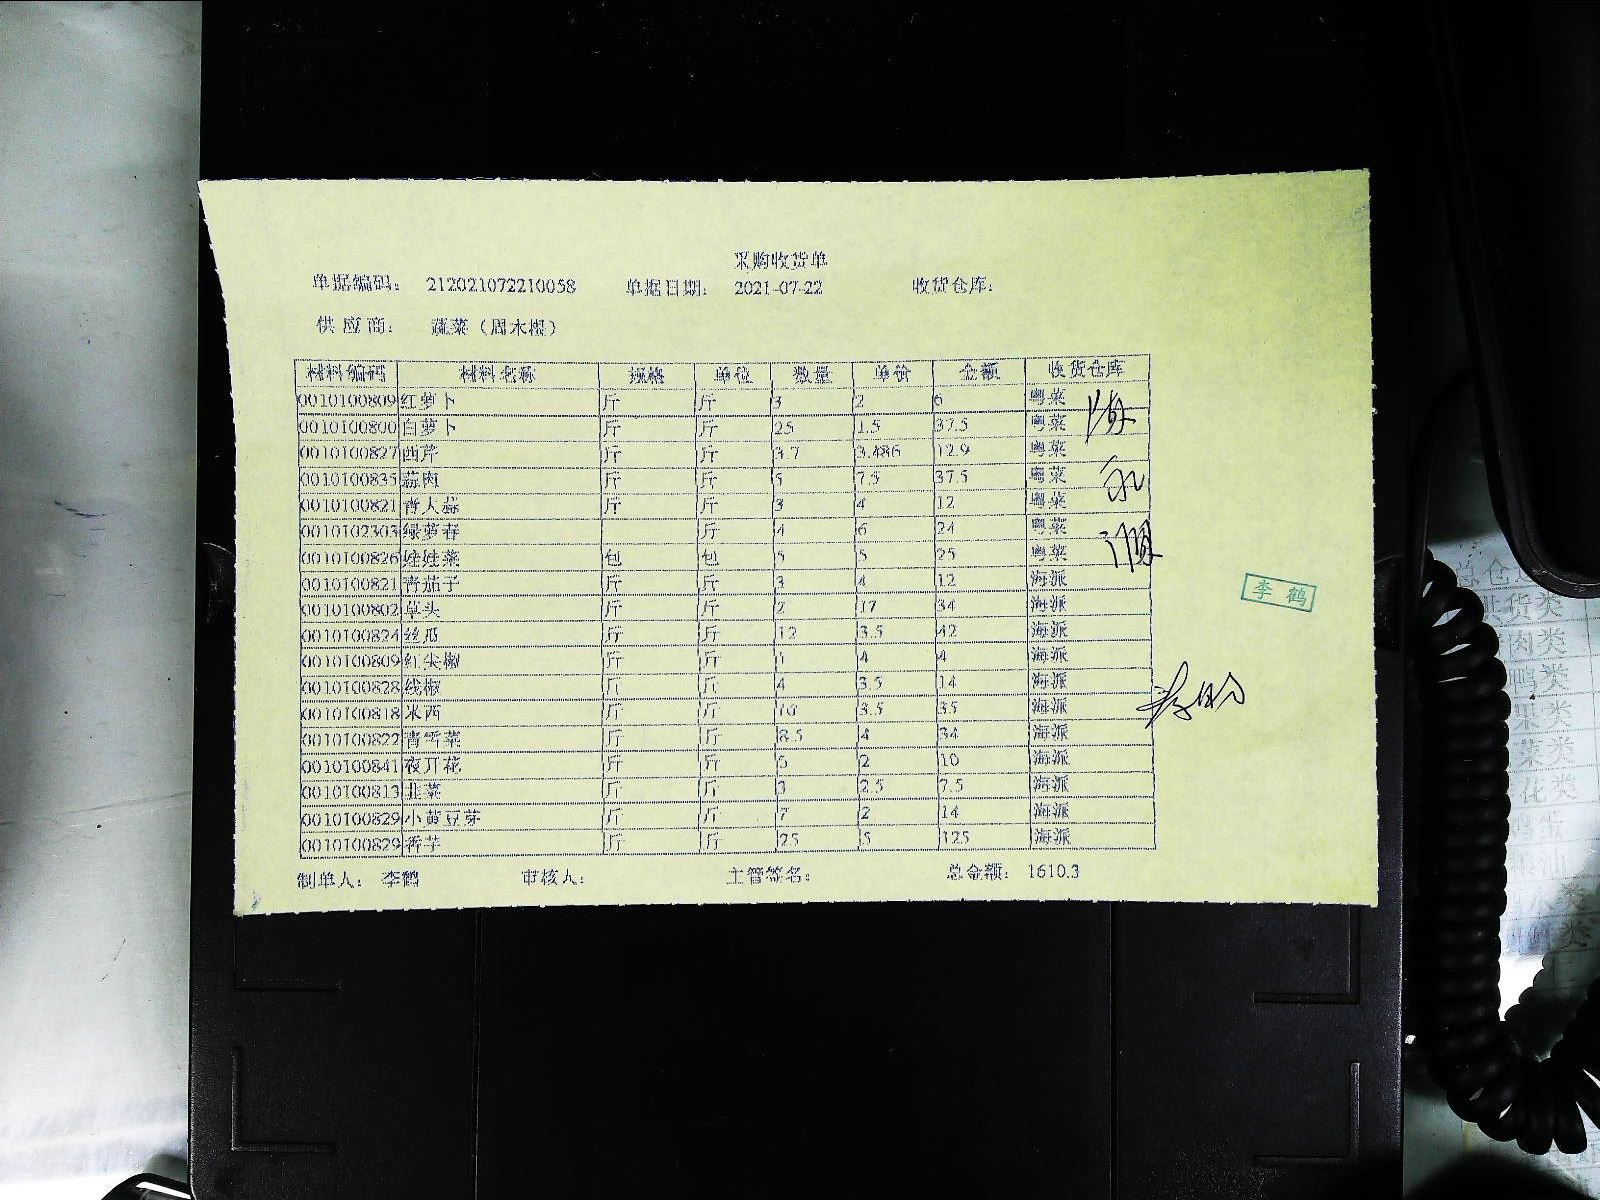 采购收货单
单据编码: 212021072210058 单据日期: 2021-07-22 收货仓库:
供应商: 蔬菜（周木根）
材料编码 材料名称 规格 单位 数量 单价 金额 收货仓库
0010100809 红萝卜 斤 斤 3 2 6 粤菜
0010100800 白萝卜 斤 斤 25 1.5 37.5 粤菜
0010100827 西芹 斤 斤 3.7 3.486 12.9 粤菜
0010100835 蒜肉 斤 斤 5 7.5 37.5 粤菜
0010100821 青大蒜 斤 斤 3 4 12 粤菜
0010102303 绿萝春 斤 4 6 24 粤菜
0010100826 娃娃菜 包 包 5 5 25 粤菜
0010100821 青茄子 斤 斤 3 4 12 海派
0010100802 草头 斤 斤 2 17 34 海派
0010100824 丝瓜 斤 斤 12 3.5 42 海派
0010100809 红尖椒 斤 斤 1 4 4 海派
0010100828 线椒 斤 斤 4 3.5 14 海派
0010100818 米西 斤 斤 10 3.5 35 海派
0010100822 青雪菜 斤 斤 8.5 4 34 海派
0010100841 夜开花 斤 斤 5 2 10 海派
0010100813 韭菜 斤 斤 3 2.5 7.5 海派
0010100829 小黄豆芽 斤 斤 7 2 14 海派
0010100829 香芋 斤 斤 25 5 125 海派
制单人: 李鹤 审核人: 主管签名: 总金额: 1610.3
李鹤
货类
肉类
鸭类
果类
菜类
花类